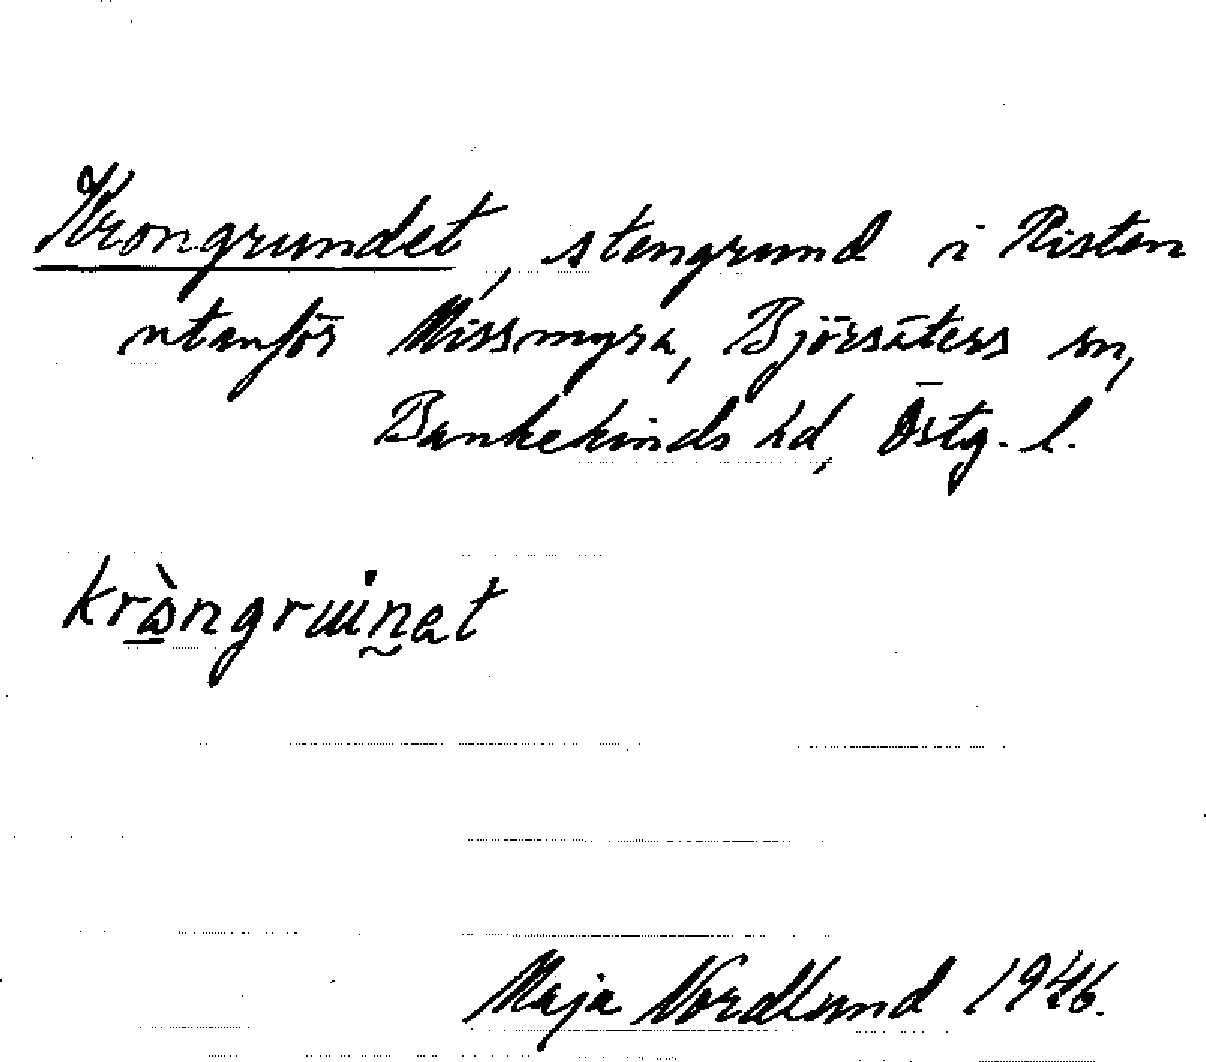 Krongrundet, stengrund i Risten
utanför Missmyra, Björsäters sn,
Bankekinds hd, Östg. l.
kràngruinat
Maja Nordlund 1946.